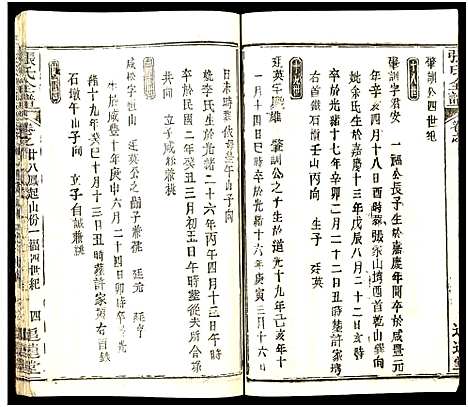 張氏全譜
肇訓公四世紀
肇訓字君安 一福公長子生於嘉慶年間卒於咸豐元
年辛亥四月十八日酉時葬張家山塆酉首乾山巽向
娶余氏生於嘉慶十三年戊辰八月二十二日
卒於光緒十七年辛卯二月二十二日丑時墓許家塆
右首鐵石嶺壬山丙向 生子 廷英
廷英字 雄 肇訓公之子生於道光十九年己亥年十
一月十四日午時卒於光緒十六年庚寅三月十六日
日未時葬 山子向
娶李氏生於光緒二十六年丙午四月二十四日午時
卒於民國二年癸丑三月初五日午時葬從夫所合塚
共向 立子咸松兼祧
咸松 廷英公之嗣子兼祧 廷元 廷亨
娶 氏生於咸豐十年庚申六月二十四日卯時卒於光
緒十九年癸巳十月十三日丑時葬許家塆右首鐵
石墩午山子向 立子自誠兼祧
張氏全譜 卷之 廿八鳳起山份一福四世紀 四 追遠堂